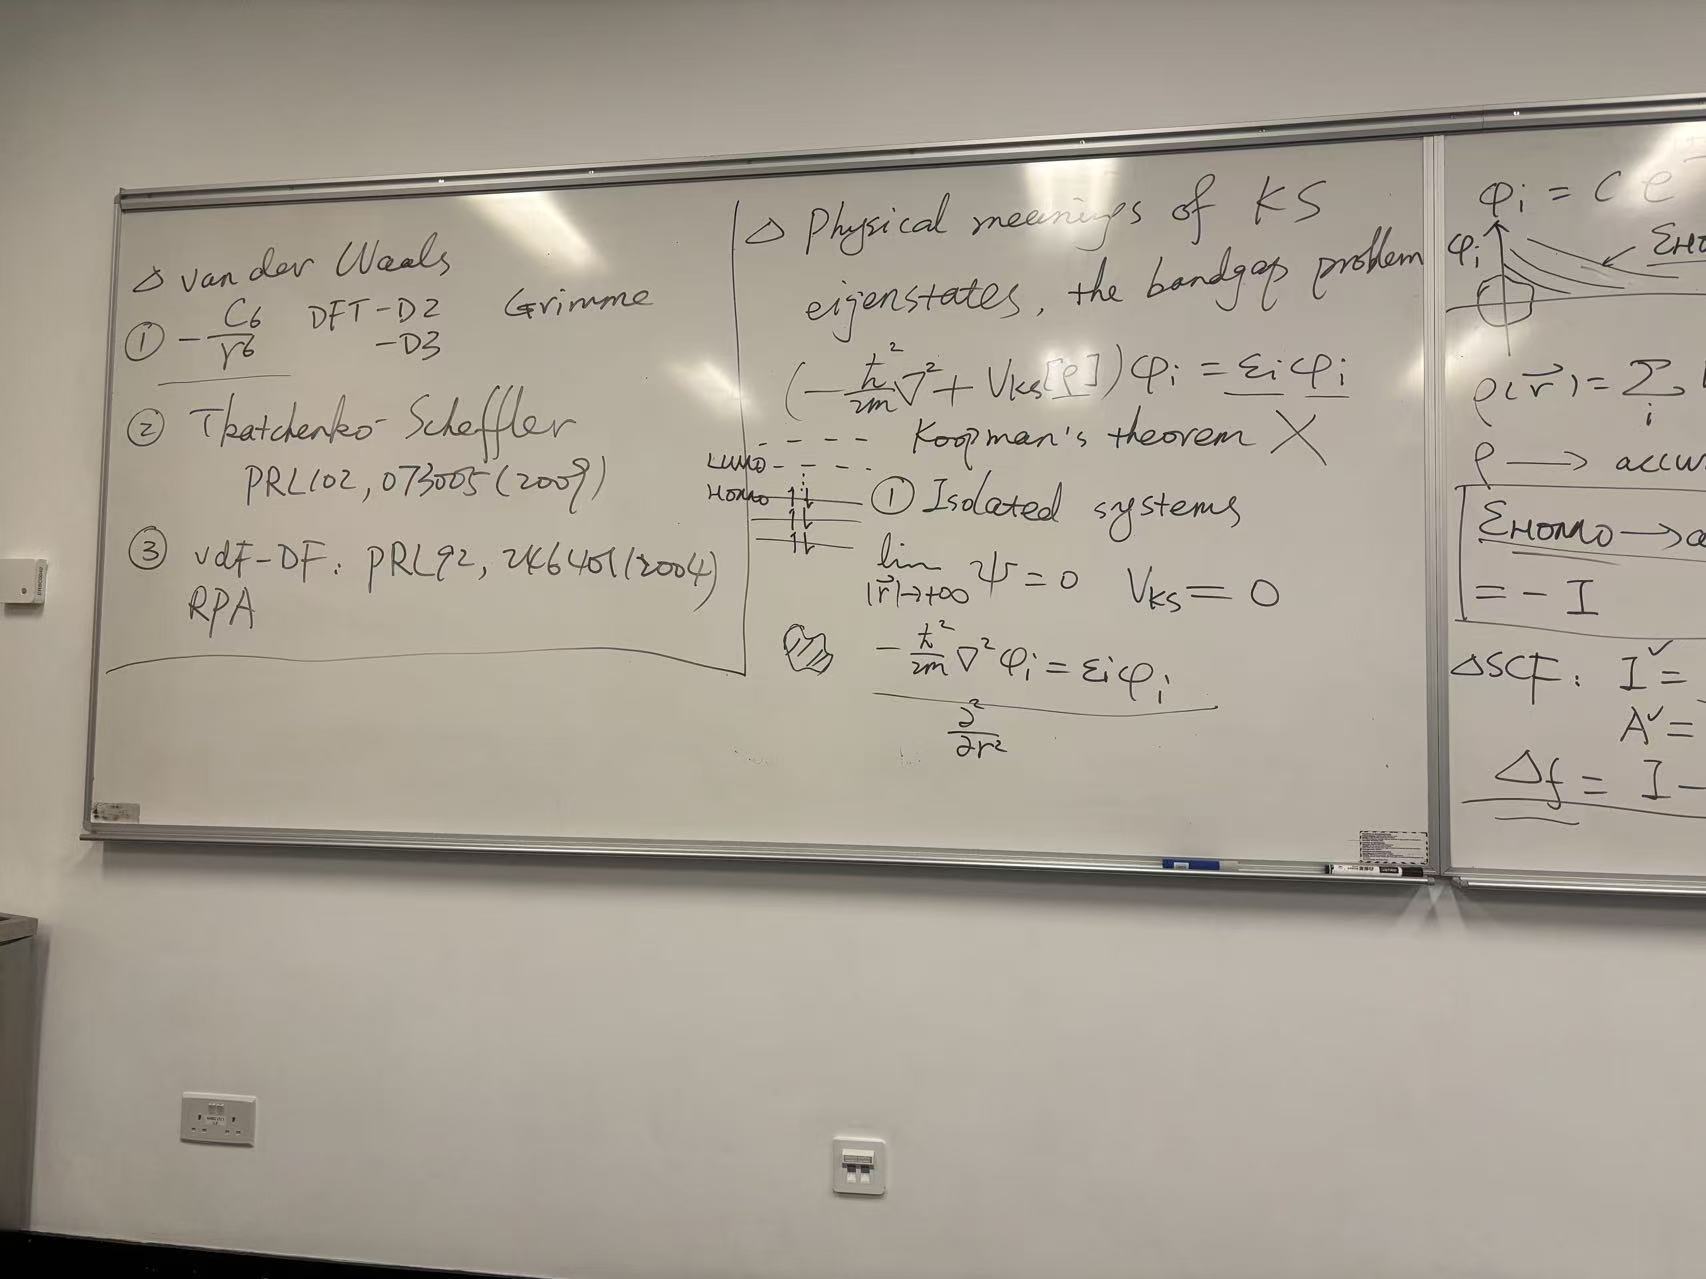 △ van der Waals
① -C6/r6 DFT-D2 Grimme
-D3
② Tkatchenko-Scheffler
PRL102, 073005(2009)
③ vdF-DF: PRL92, 246401(2004)
RPA
△ Physical meanings of KS
eigenstates, the bandgap problem
(-ħ²/2m ∇² + VKS[ρ])φi = εiφi
Koopman's theorem X
LUMO
HOMO
① Isolated systems
lim |r⃗|→+∞ ψ = 0 VKS = 0
-ħ²/2m ∇²φi = εiφi
∂²/∂r²
φi = C e
φi
ρ(r⃗) = Σi
ρ →
εHOMO →
= - I
ΔSCF: I✓ =
A✓ =
Δf = I -